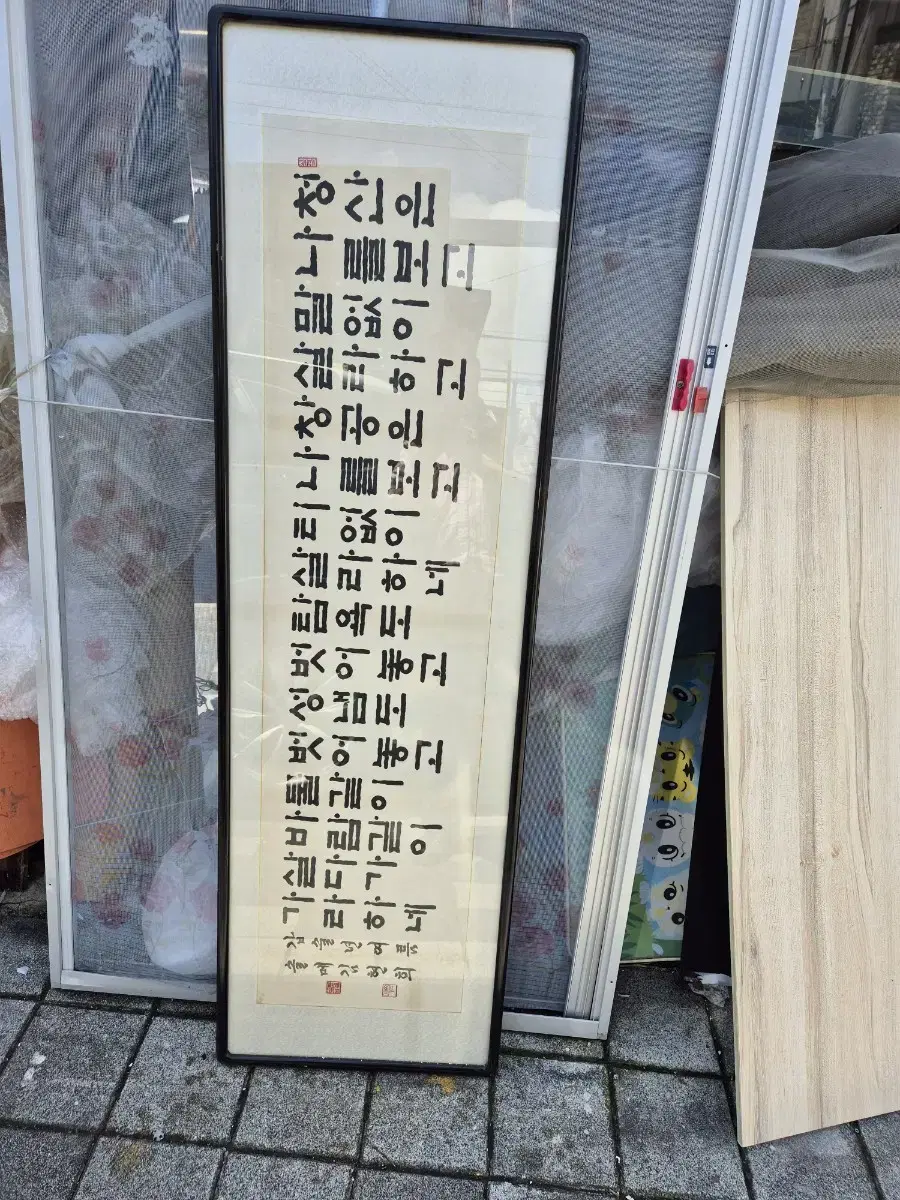 청산은
나를보고
말없이
살라하고
창공은
나를보고
티없이
살라하네
탐욕도
벗어놓고
성냄도
벗어놓고
물같이
바람같이
살다가
가라하네
갑술년여름
솔메김현희